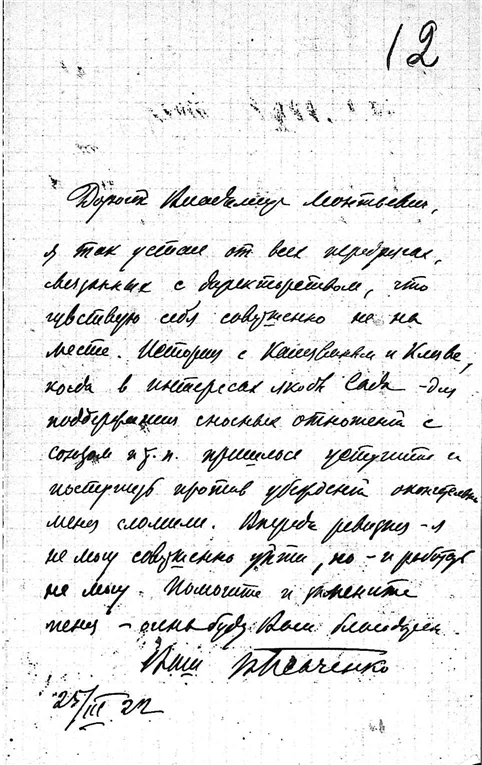 12
Дорогой Владимир Леонтьевич,
я так устал от всех передряг,
связанных с директорством, что
чувствую себя совершенно не на
месте. История с и
когда в интересах якобы Сада – для
поддержания сносных отношений с
союзом и т. п. пришлось уступить и
поступить против убеждений окончательно
меня сломили. Впереди ревизия – я
не могу совершенно уйти, но – и работать
не могу. Помогите и замените
меня – очень буду Вам благодарен.
Ваш
25/III 22